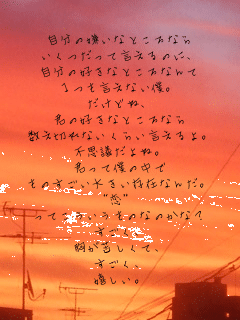 自分の嫌いなとこみなら
いくつだって言えるのに、
自分の好きなとこなんて
1つも言えない僕。
だけどね、
君の好きなとこみなら
数え切れないくらい言えるよ。
不思議だよね。
君って僕の中で
そのすごい大きい存在なんだ。
“恋”
ってこういうものなのかなて
すごく、
胸が苦しくて、
すごく、
嬉しい。